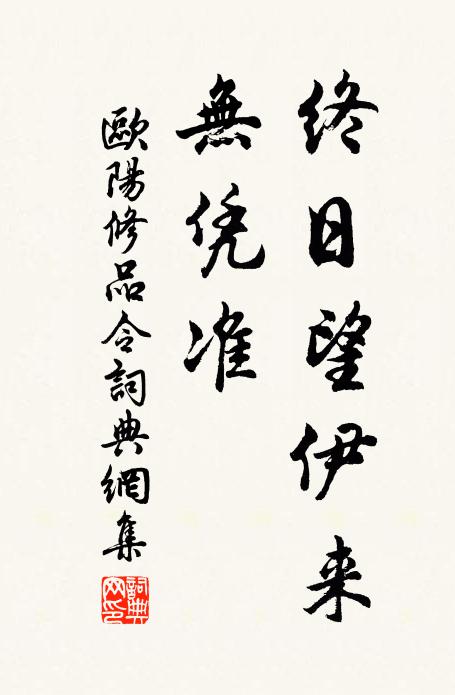 終日望伊来
無凭准
歐陽修品令詞典網集
詞典网印